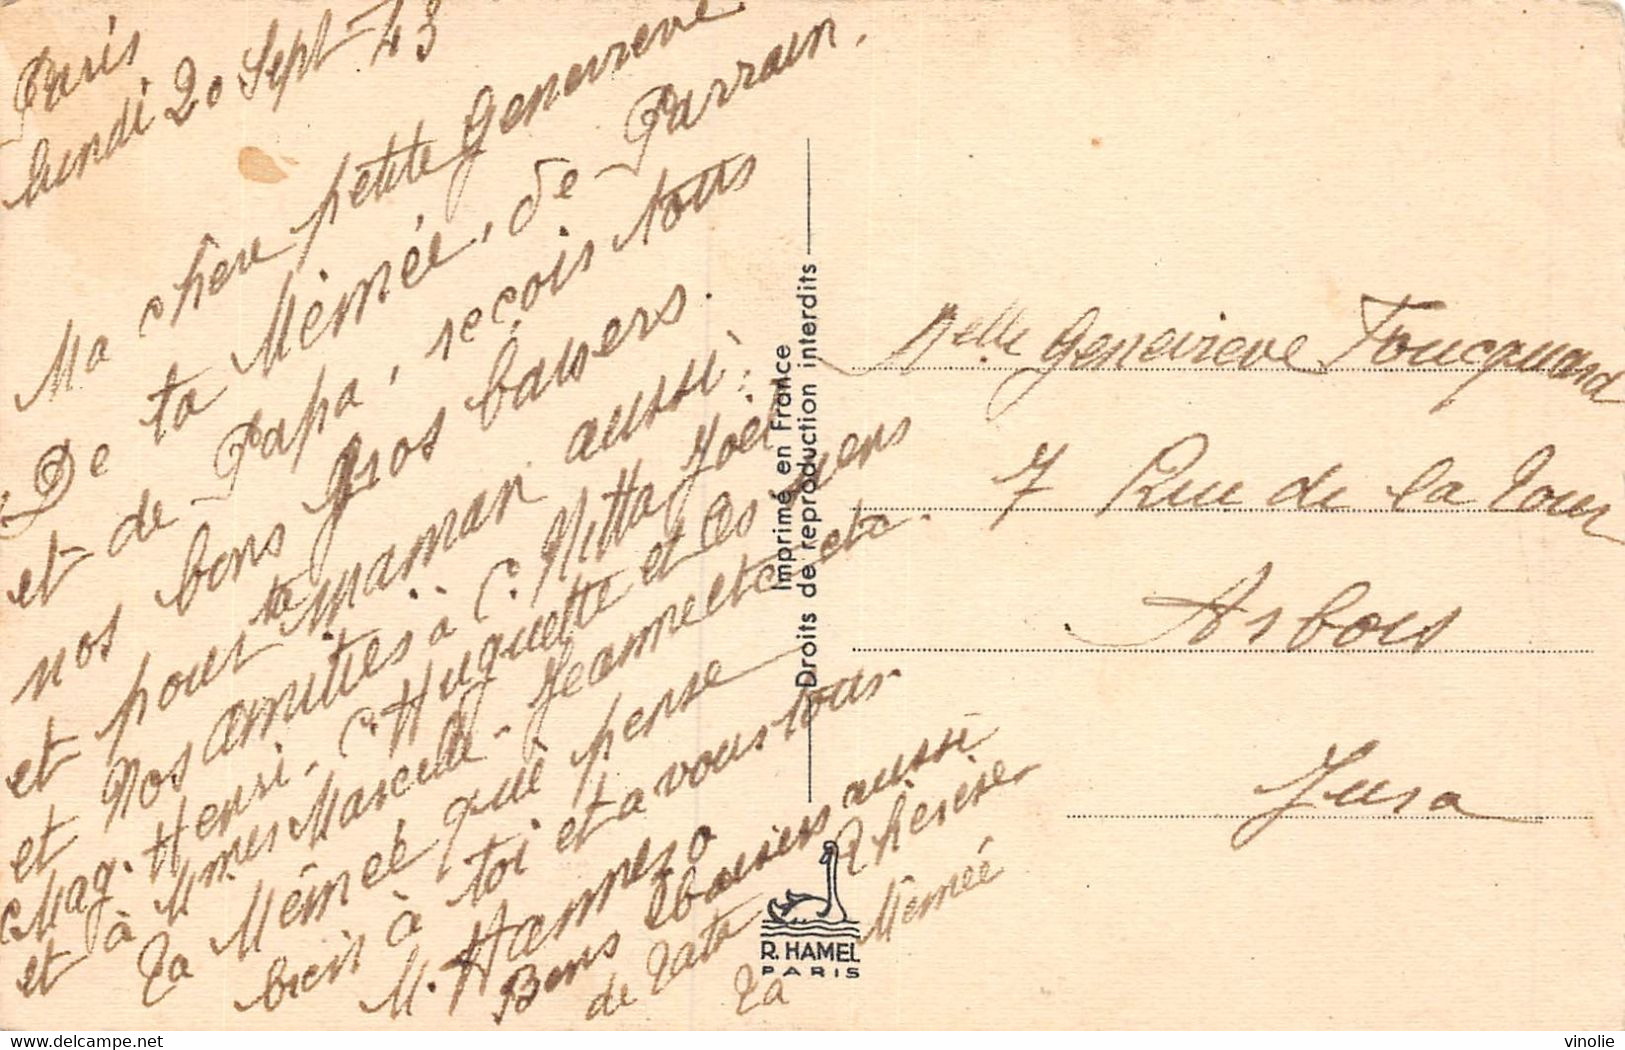 Paris
lundi 20 Sept 43
Ma chère petite Geneviève
De ta Mémée, de Parrain,
et de Papa, reçois tous
nos bons gros baisers.
et pour ta maman aussi
et Nos amitiés à : C. Nitta Joël
Mag. Henri, C. Huguette et les siens
et à Mmes Marcelle - Jeannette etc etc.
Ta Mémée qui pense
bien à toi et à vous tous
M. Hannezo
Bons baisers aussi
de Tata Thérèse
Ta Mémée
Imprimé en France
Droits de reproduction interdits
Melle Geneviève Foucquard
7 Rue de la Tour
Arbois
Jura
R. HAMEL
PARIS
delcampe.net
vinolie